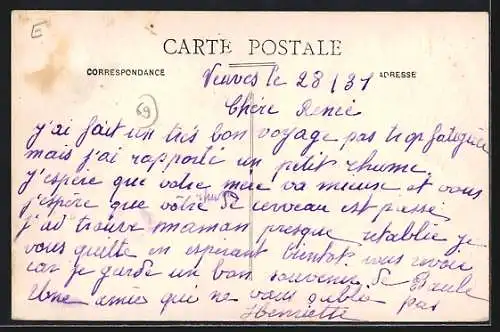 E
CARTE POSTALE
CORRESPONDANCE
ADRESSE
Veuves le 28/3/31
69
Chère Renée
J'ai fait un très bon voyage pas trop fatiguée
mais j'ai rapporté un petit rhume.
J'espère que votre mère va mieux et vous
j'espère que votre rhume de cerveau est passé
j'ai trouvé maman presque rétablie je
vous quitte en espérant bientôt vous revoir
car je garde un bon souvenir de
Une amie qui ne vous oublie pas
Henriette